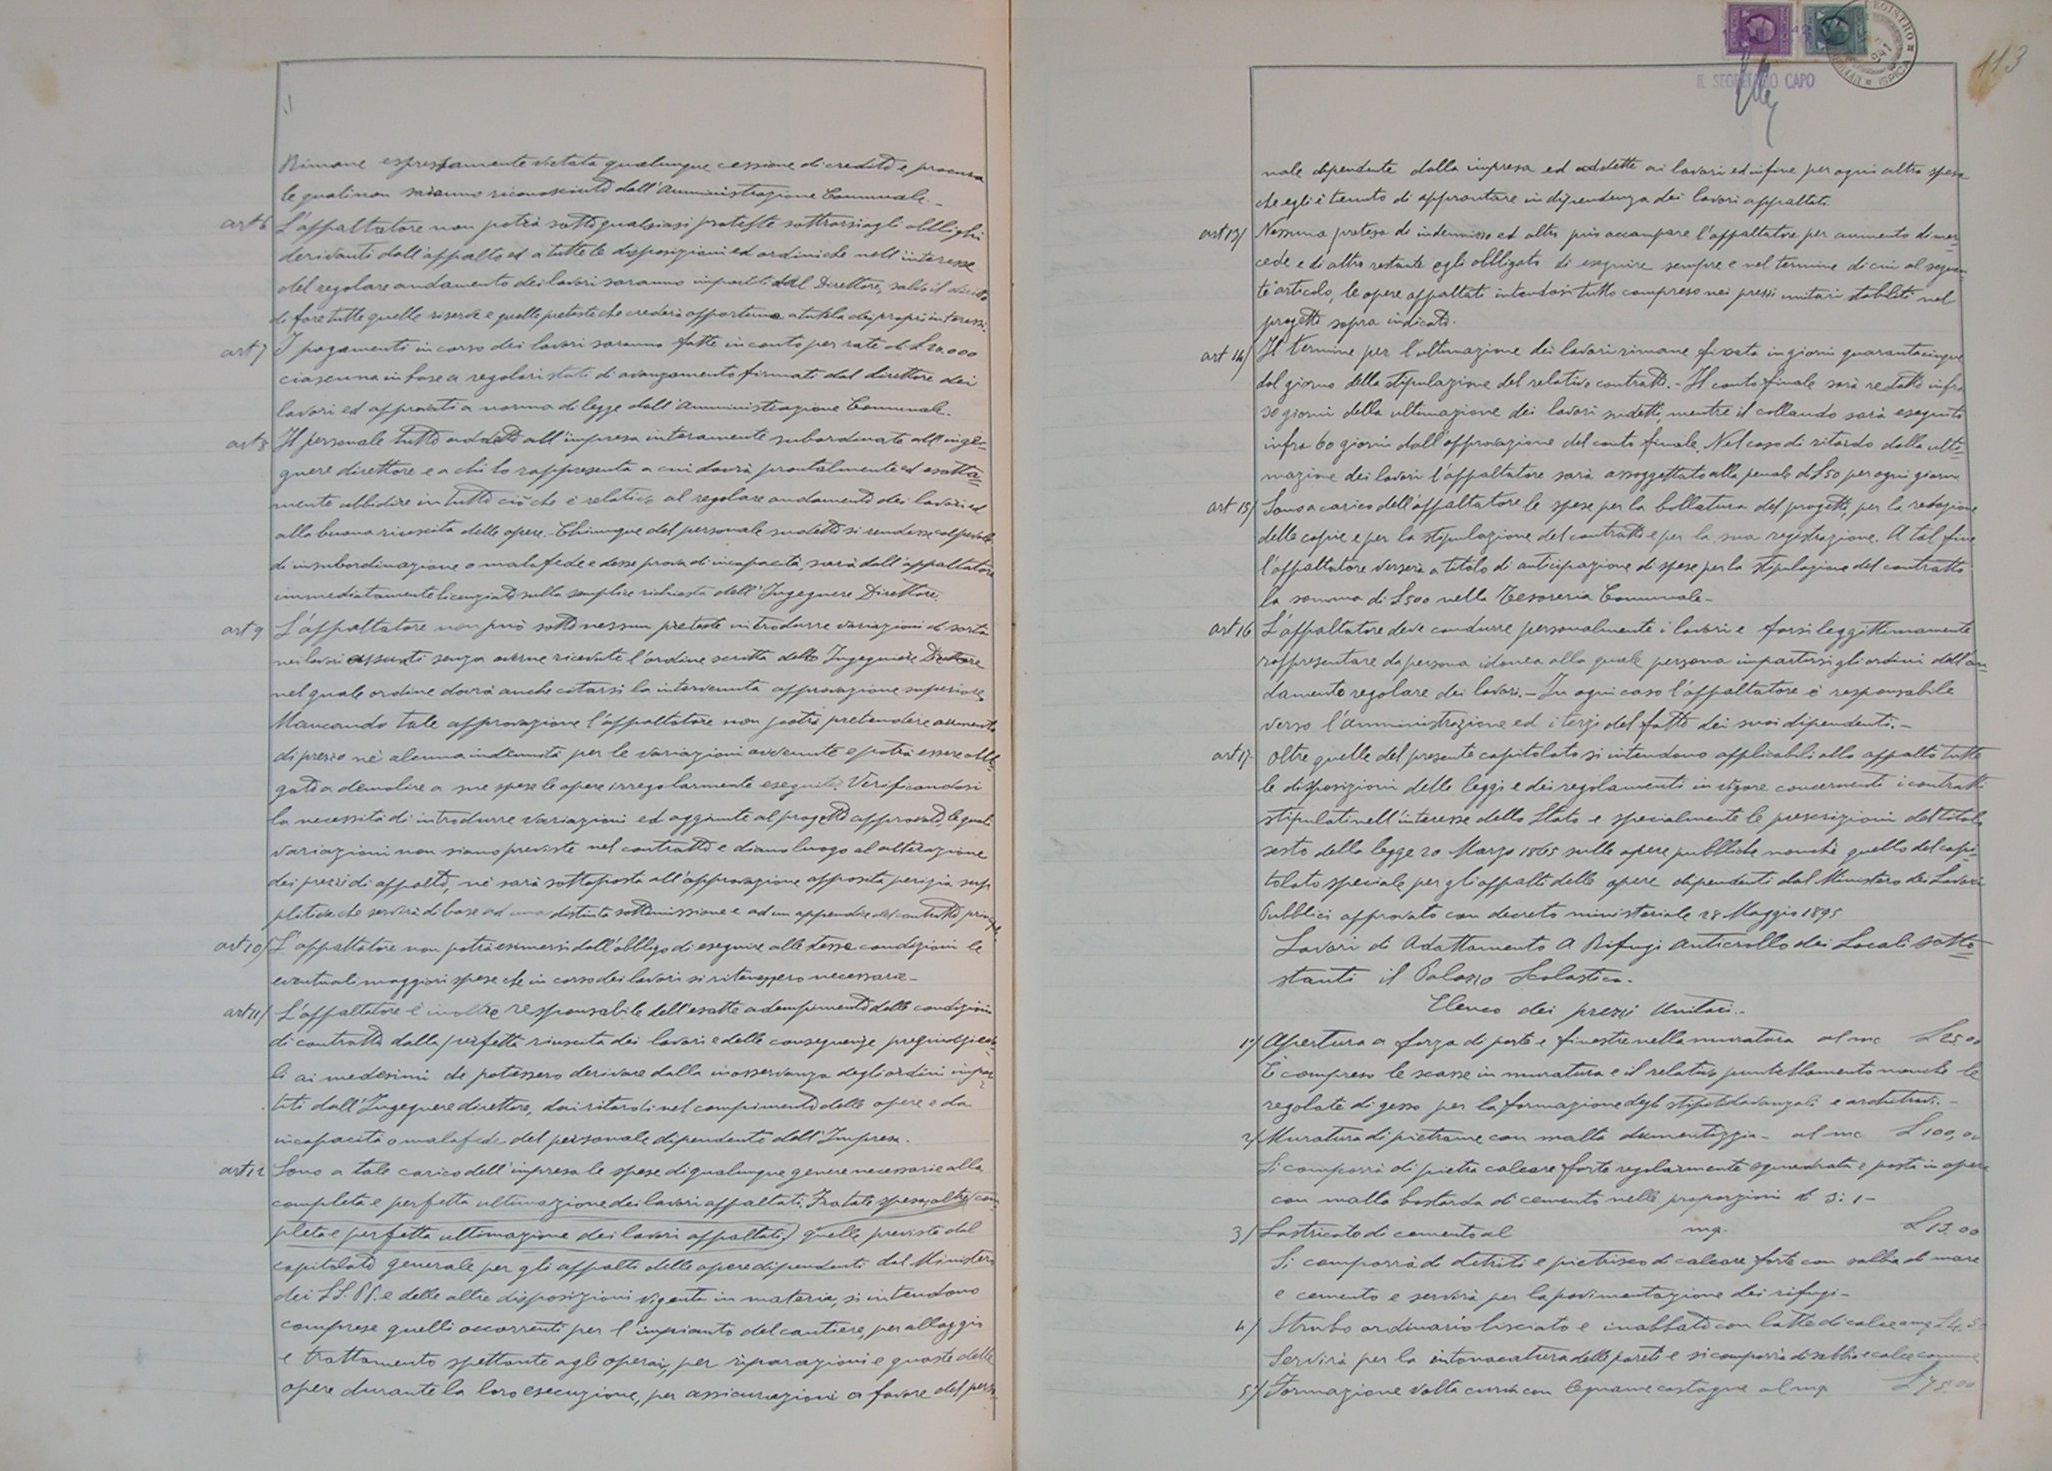 Rimane espressamente vietata qualunque cessione di credito e procura
le quali non saranno riconosciuto dall'Amministrazione Comunale.-
art 6 L'appaltatore non potrà sotto qualsiasi proteste sottrarsi agli obblighi
derivanti dall'appalto ed a tutte le disposizioni ed ordini che nell'interesse
del regolare andamento dei lavori saranno impartiti dal Direttore, salvo il diritto
di fare tutte quelle riserve e quelle proteste che crederà opportune a tutela dei propri interessi.
art 7 I pagamenti in corso dei lavori saranno fatte in conto per rate di £ 20.000
ciascuna in base a regolari stati di avanzamento firmati dal direttore dei
lavori ed approvati a norma di legge dall'Amministrazione Comunale.
art 8 Il personale tutto addetto all'impresa interamente subordinato all'inge=
gnere direttore e a chi lo rappresenta a cui dovrà prontalmente ed esatta=
mente ubbidire in tutto ciò che è relativo al regolare andamento dei lavori ed
alla buona riuscita delle opere. Chiunque del personale sudetto si rendesse colpevole
di insubordinazione o malafede e desse prova di incapacità, sarà dall'appaltatore
immediatamente licenziato sulla semplice richiesta dell'Ingegnere Direttore.
art 9 L'appaltatore non può sotto nessun pretesto introdurre variazioni di sorta
nei lavori assunti senza averne ricevute l'ordine scritto dello Ingegnere Direttore
nel quale ordine dovrà anche citarsi la intervenuta approvazione superiore.
Mancando tale approvazione l'appaltatore non potrà pretendere aumento
di prezzo nè alcuna indennità per le variazioni avvenute e potrà essere obbli=
gato a demolire a sue spese le opere irregolarmente eseguite. Verificandosi
la necessità di introdurre variazioni ed aggiunte al progetto approvato, le quali
variazioni non siano previste nel contratto e diano luogo al alterazione
dei prezzi di appalto, nè sarà sottoposta all'approvazione apposita perizia sup
pletiva che servirà di base ad una distinta sottomissione e ad un appendice del contratto principale.
art 10/ L'appaltatore non potrà esimersi dall'obbligo di eseguire alle stesse condizioni le
eventuali maggiori spese che in corso dei lavori si ritenessero necessarie-
art 11/ L'appaltatore è inoltre responsabile dell'esatto adempimento delle condizioni
di contratto dalla perfetta riuscita dei lavori e delle conseguenze pregiudizievo=
li ai medesimi che potessero derivare dalla inosservanza degli ordini impar=
titi dall'Ingegnere direttore, dai ritardi nel compimento delle opere e da
incapacità o malafede del personale dipendente dall'Impresa.
art 12 Sono a tale carico dell'impresa le spese di qualunque genere necessarie alla
completa e perfetta ultimazione dei lavori appaltati. Fra tale spese, oltre (com
pleta e perfetta ultimazione dei lavori appaltati) quelle previste dal
capitolato generale per gli appalti delle opere dipendenti dal Ministero
dei LL.PP. e delle altre disposizioni vigente in materia, si intendono
comprese quelli occorrenti per l'impianto del cantiere, per alloggio
e trattamento spettante agli operai, per riparazioni e guaste delle
opere durante la loro esecuzione, per assicurazioni a favore del perso=
IL SEGRETARIO CAPO
REGISTRO ISPICA
113
nale dipendente dalla impresa ed addette ai lavori ed infine per ogni altra spesa
che egli è tenuto di approntare in dipendenza dei lavori appaltati.
art 13/ Nessuna pretesa di indennizzo ed altro può accampare l'appaltatore per aumento di mer=
cede e di altro restante egli obbligato di eseguire sempre e nel termine di cui al seguen
te articolo, le opere appaltati intendosi tutto compreso nei prezzi unitari stabiliti nel
progetto sopra indicato.
art 14/ Il termine per l'ultimazione dei lavori rimane fissata in giorni quarantacinque
dal giorno della stipulazione del relativo contratto.- Il conto finale sarà redatto infra
30 giorni della ultimazione dei lavori sudetti, mentre il collaudo sarà eseguito
infra 60 giorni dall'approvazione del conto finale. Nel caso di ritardo dalla ulti=
mazione dei lavori l'appaltatore sarà assoggettato alla penale di £ 50 per ogni giorno
art 15/ Sono a carico dell'appaltatore le spese per la bollatura del progetto, per la redazione
delle copie e per la stipulazione del contratto e per la sua registrazione. A tal fine
l'appaltatore verserà a titolo di anticipazione di spese per la stipulazione del contratto
la somma di £ 500 nella Tesoreria Comunale-
art 16 L'appaltatore deve condurre personalmente i lavori e farsi leggittimamente
rappresentare da persona idonea alla quale persona impartirsi gli ordini dell'an=
damento regolare dei lavori.- In ogni caso l'appaltatore è responsabile
verso l'amministrazione ed i terzi del fatto dei suoi dipendenti.-
art 17- Oltre quelle del presente capitolato si intendono applicabili allo appalto tutte
le disposizioni delle leggi e dei regolamenti in vigore concernenti i contratti
stipulati nell'interesse dello Stato e specialmente le prescrizioni del titolo
sesto della legge 20 Marzo 1865 sulle opere pubbliche nonchè quello del capi=
tolato speciale per gli appalti delle opere dipendenti dal Ministero dei Lavori
Pubblici approvato con decreto ministeriale 28 Maggio 1895
Lavori di Adattamento A Rifugi Anticrollo dei Locali Sotto=
stanti il Palazzo Scolastico.
Elenco dei prezzi Unitari.
1°/ Apertura a forza di porte e finestre nella muratura al mc £ 25.00
È compreso le scasse in muratura e il relativo puntellamento nonchè le
regolate di gesso per la formazione degli stipiti davanzali e architravi.-
2/ Muratura di pietrame con malta cementizzia- al mc £ 100,00
Si comporrà di pietra calcare forte regolarmente squadrata e posta in opera
con malta bastarda di cemento nelle proporzioni di 3:1-
3/ Lastricato di cemento al mq. £ 13.00
Si comporrà di detriti e pietrisco di calcare forte con sabbia di mare
e cemento e servirà per la pavimentazione dei rifugi-
4/ Strabo ordinario lisciato e inabbato con latte di calce a mq £ 4.50
Servirà per la intonacatura delle pareti e si comporrà di sabbia e calce comune
5°/ Formazione volta curva con legname castagno al mq £ 75.00